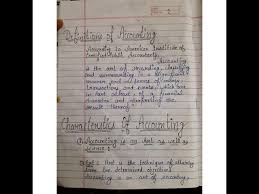 Definitions of Accounting
According to American Institute of
Certified Public Accountants,
Accounting
is the art of recording, classifying
and summarising in a significant
manner and in terms of
transactions and events, which are
in part at least of a financial
character and interpreting the
result thereof."
Characteristics Of Accounting
Accounting is an Art as well as
Science :-
Art : Art is the technique of
the determined objectives
Accounting is an art of recording,